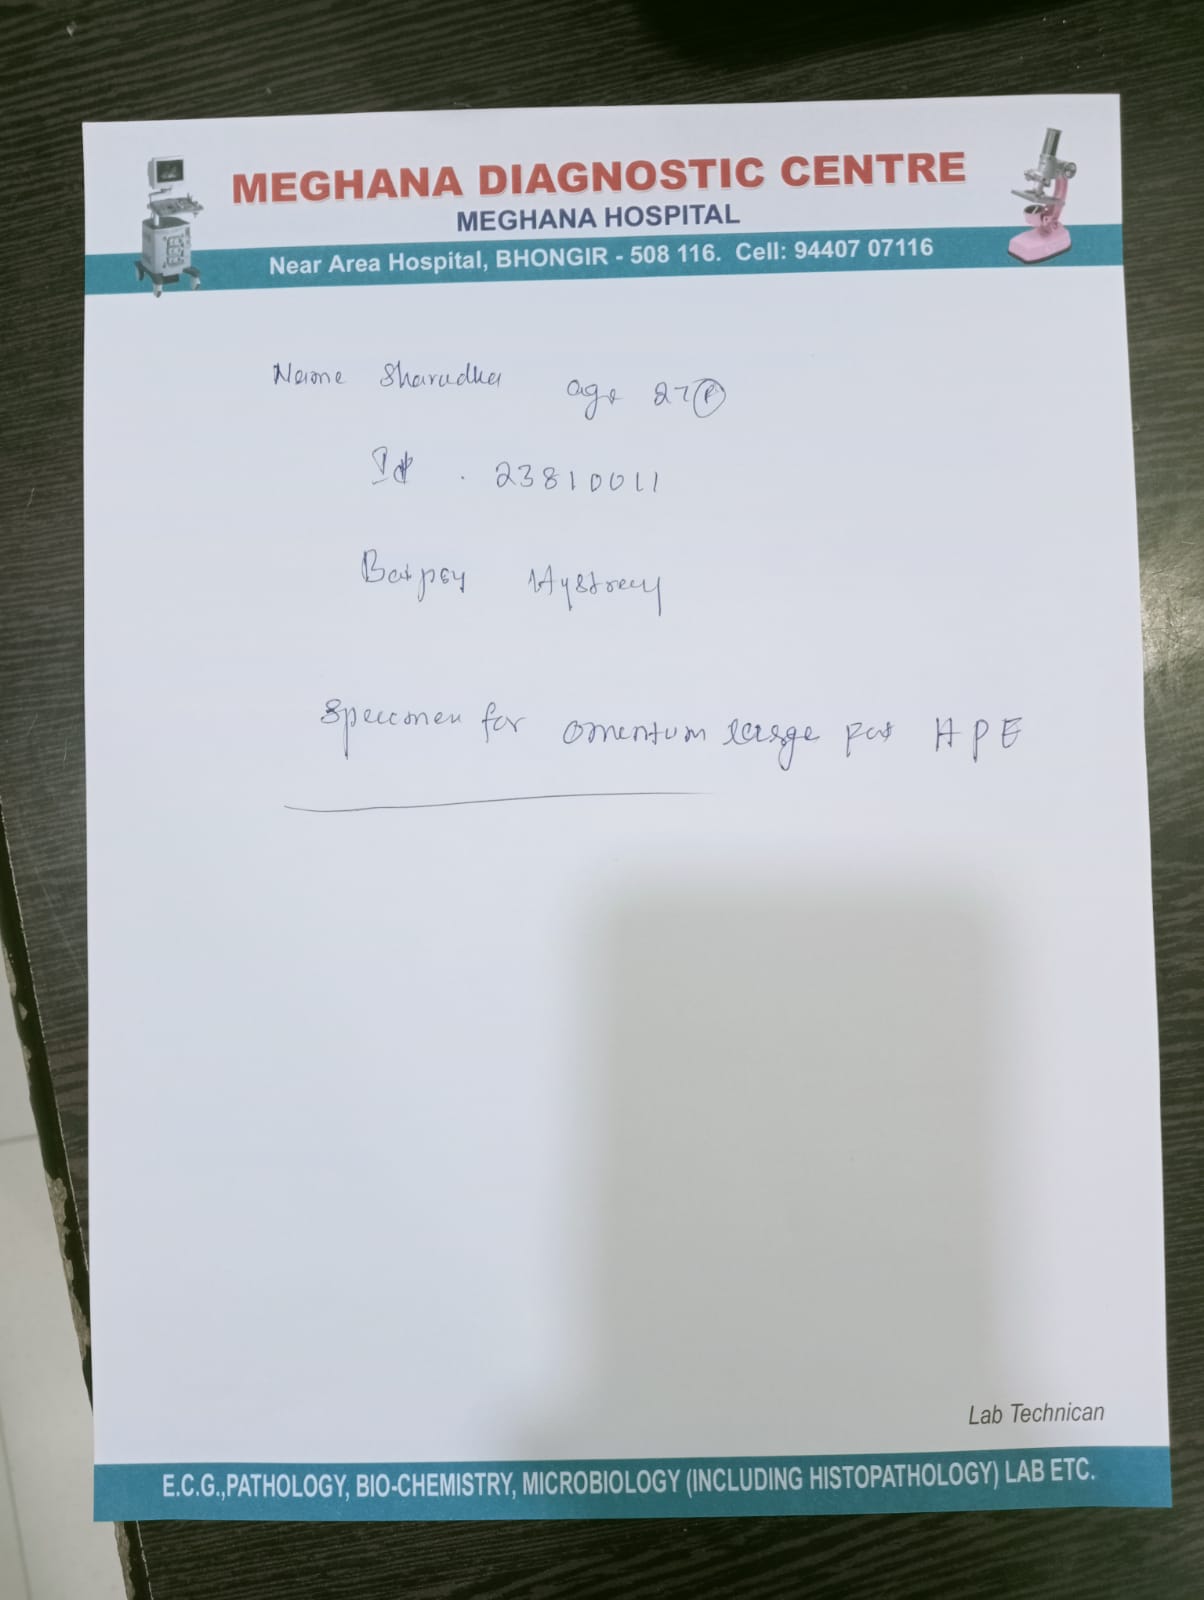 MEGHANA DIAGNOSTIC CENTRE
MEGHANA HOSPITAL
Near Area Hospital, BHONGIR - 508 116. Cell: 94407 07116
Name Sharadha age 27 F
Id . 23810011
Baipsy Hystreey
Speecmen for omentum large part HPE
Lab Technican
E.C.G.,PATHOLOGY, BIO-CHEMISTRY, MICROBIOLOGY (INCLUDING HISTOPATHOLOGY) LAB ETC.